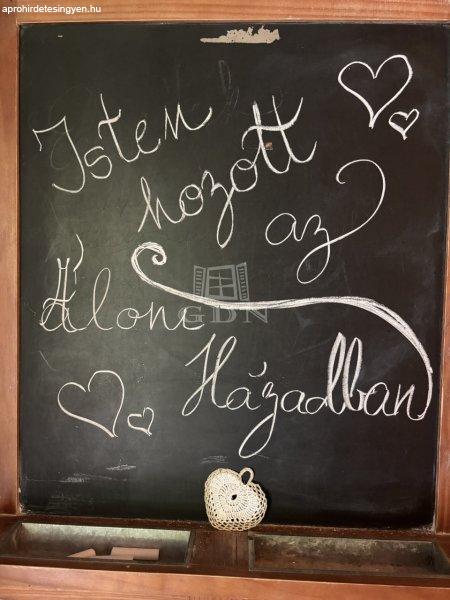 aprohirdetesingyen.hu
Isten
hozott
az
Álom
Házadban
GDN